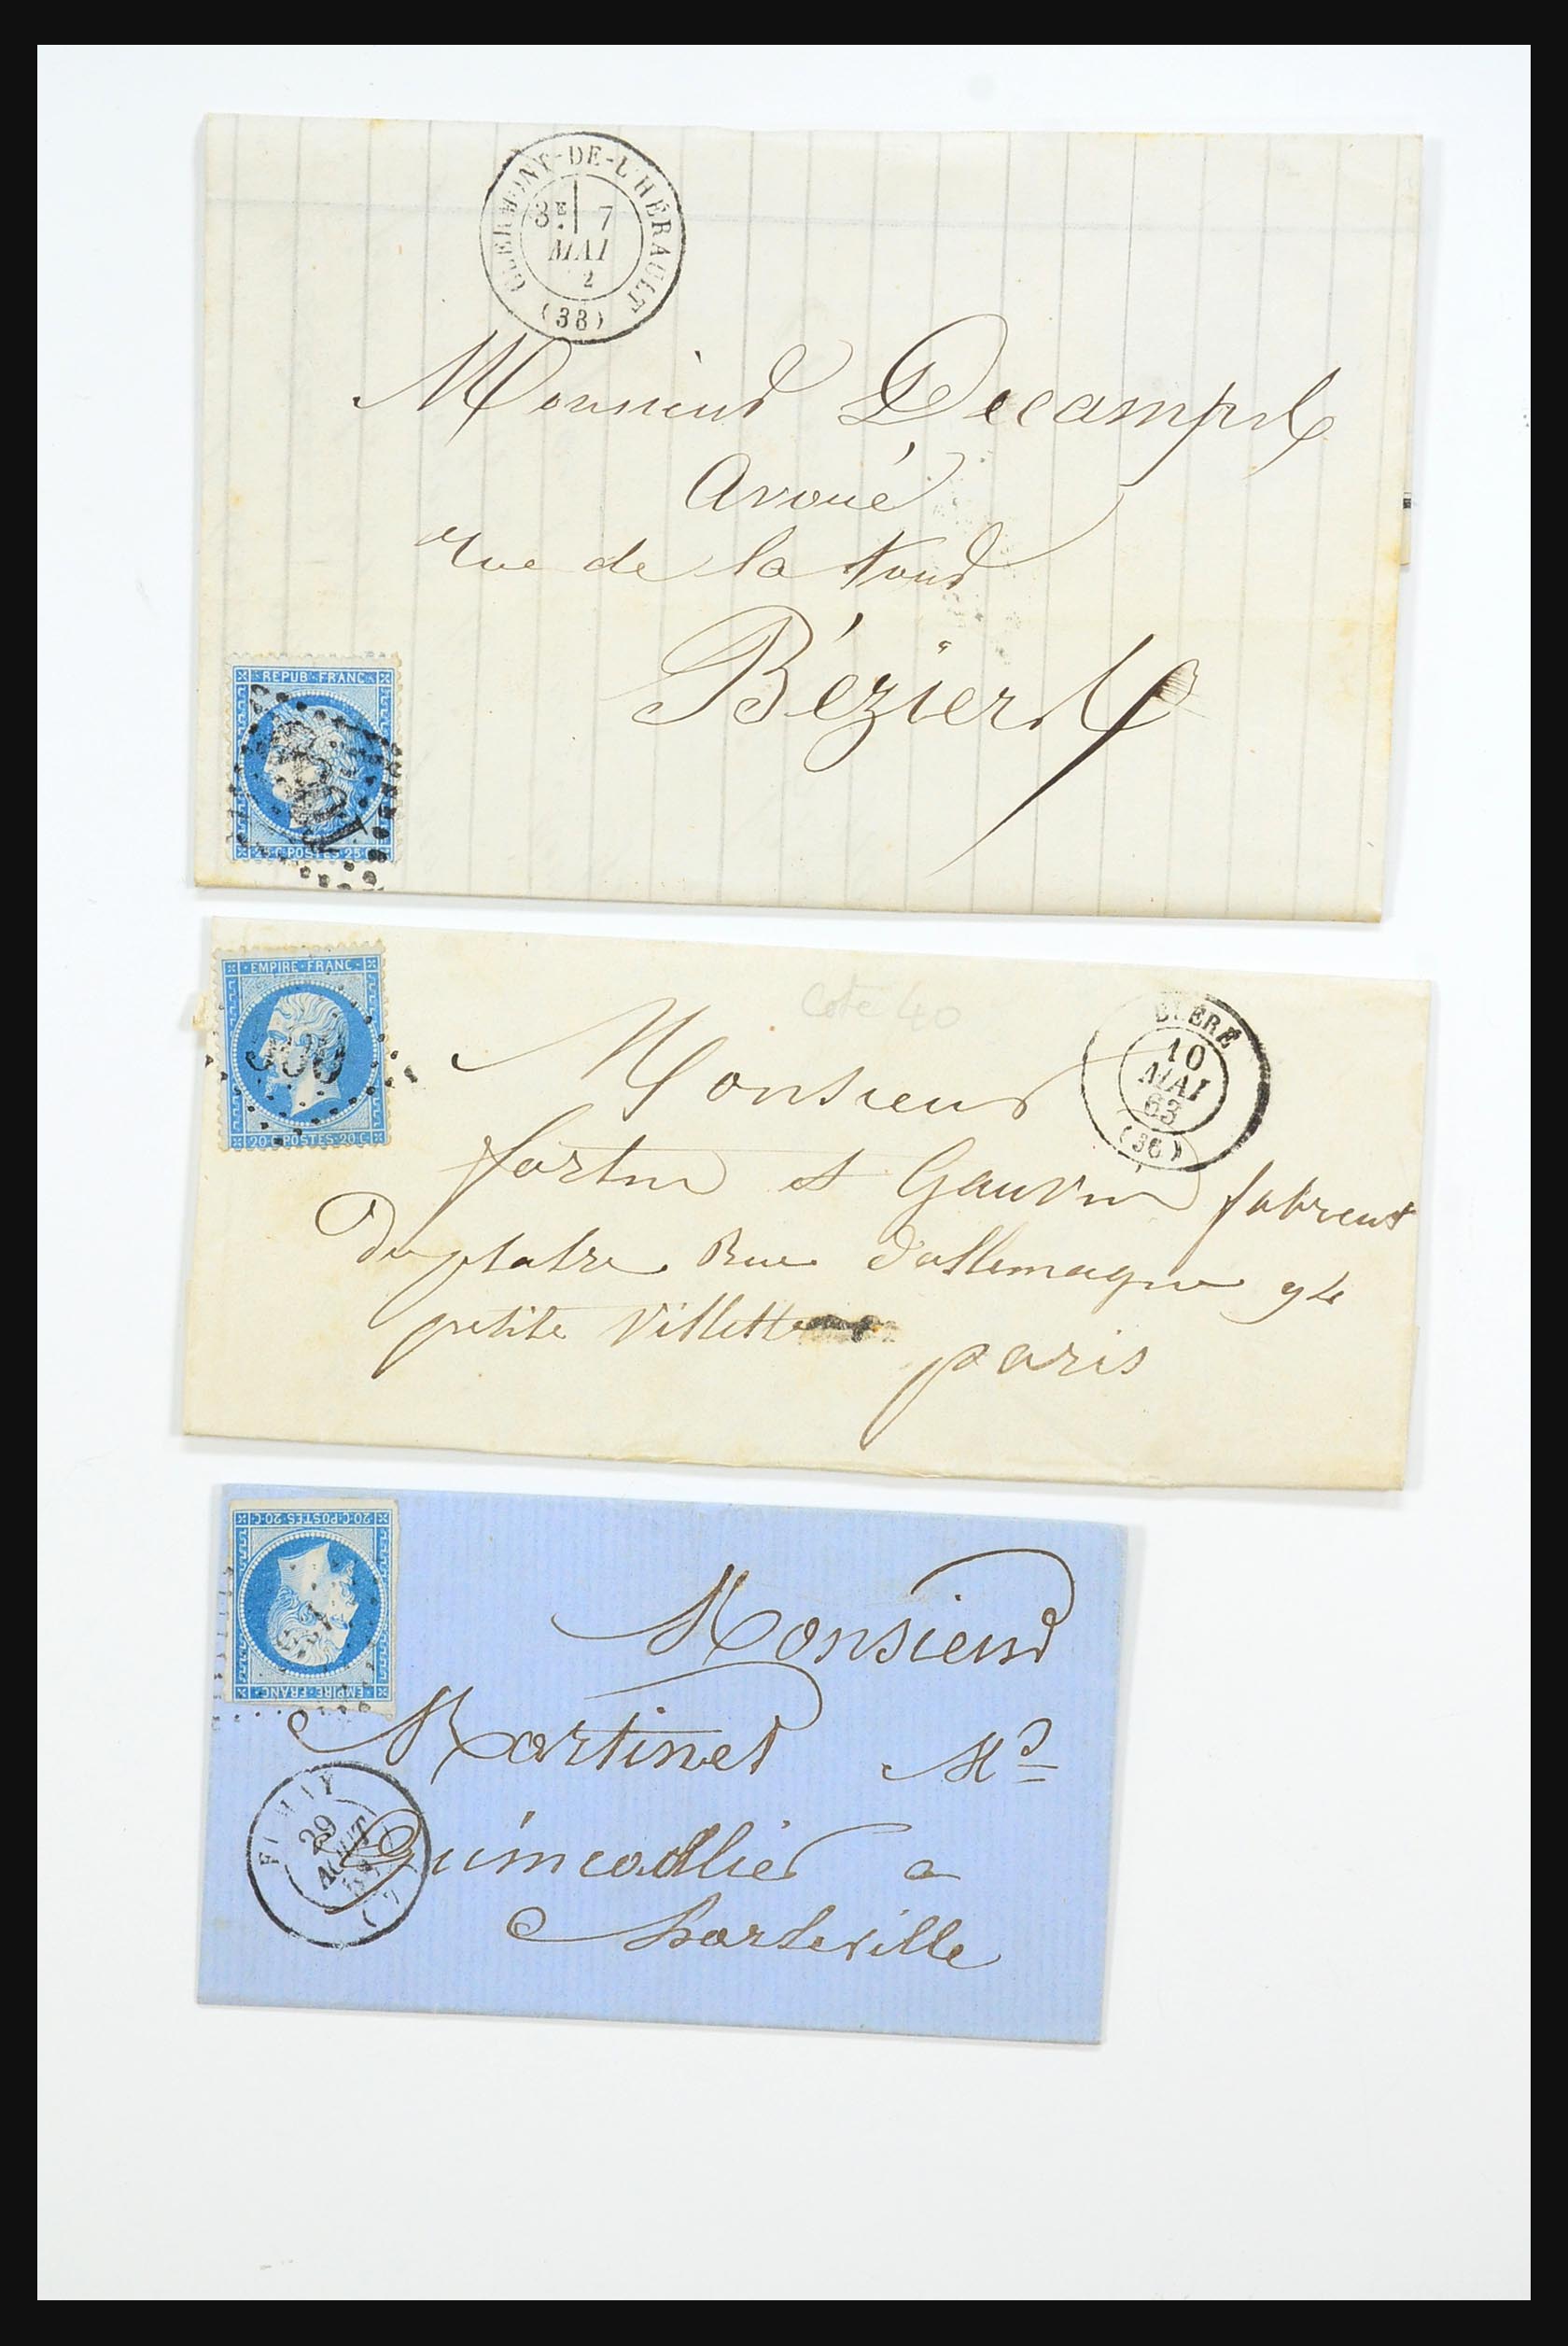 CLERMONT-DE-L'HÉRAULT
3E 7
MAI
(38)
Monsieur Decamps
Avoué
rue de la
Béziers
REPUB·FRANC
25·C·POSTES·25·C
EMPIRE·FRANC
20·C·POSTES·20·C
Cote 40
BLÉRÉ
10
MAI
63
(36)
Monsieur
fortin et Gauvin fabricant
Du platre Rue d'allemagne 94
petite Villette
paris
20·C·POSTES·20·C
EMPIRE·FRANC
Monsieur
Martinet Md
Quincallier a
Charleville
FUMAY
29
AOUT